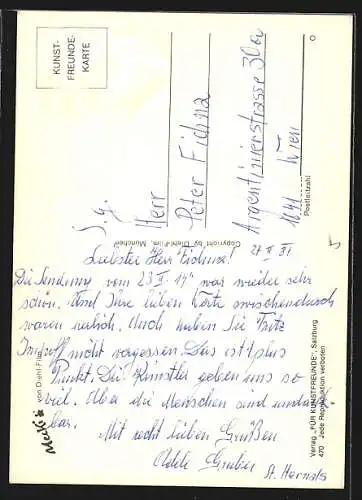 KUNST-
FREUNDE-
KARTE
S. g.
Herr
Peter Fichna
Argentinierstrasse 30a
1041 Wien
Postleitzahl
Copyright by Diehl-Film, München
Liebster Herr Fichna!
Die Sendung vom 23 II 14h war wieder sehr
schön. Und Ihre lieben Worte zwischendurch
waren herrlich. Auch haben Sie Fritz
Imhoff nicht vergessen. Das ist 1 plus
Punkt. Die Künstler geben uns so
viel. Aber die Menschen sind undank
bar.
Mit recht lieben Grüßen
Adele Gruber
Mecki von Diehl-Film
Verlag „FÜR KUNSTFREUNDE", Salzburg
470 Jede Reproduktion verboten